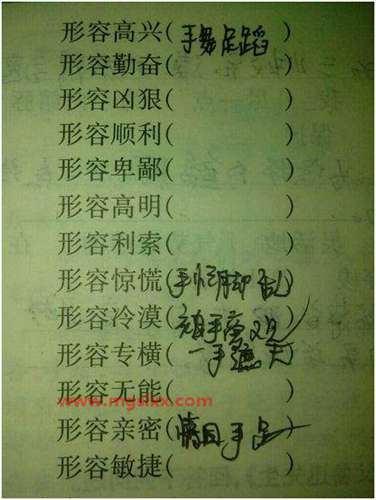 形容高兴(手舞足蹈)
形容勤奋( )
形容凶狠( )
形容顺利( )
形容卑鄙( )
形容高明( )
形容利索( )
形容惊慌(手忙脚乱)
形容冷漠(袖手旁观)
形容专横(一手遮天)
形容无能( )
www.mgulxx.com
形容亲密(情同手足)
形容敏捷( )